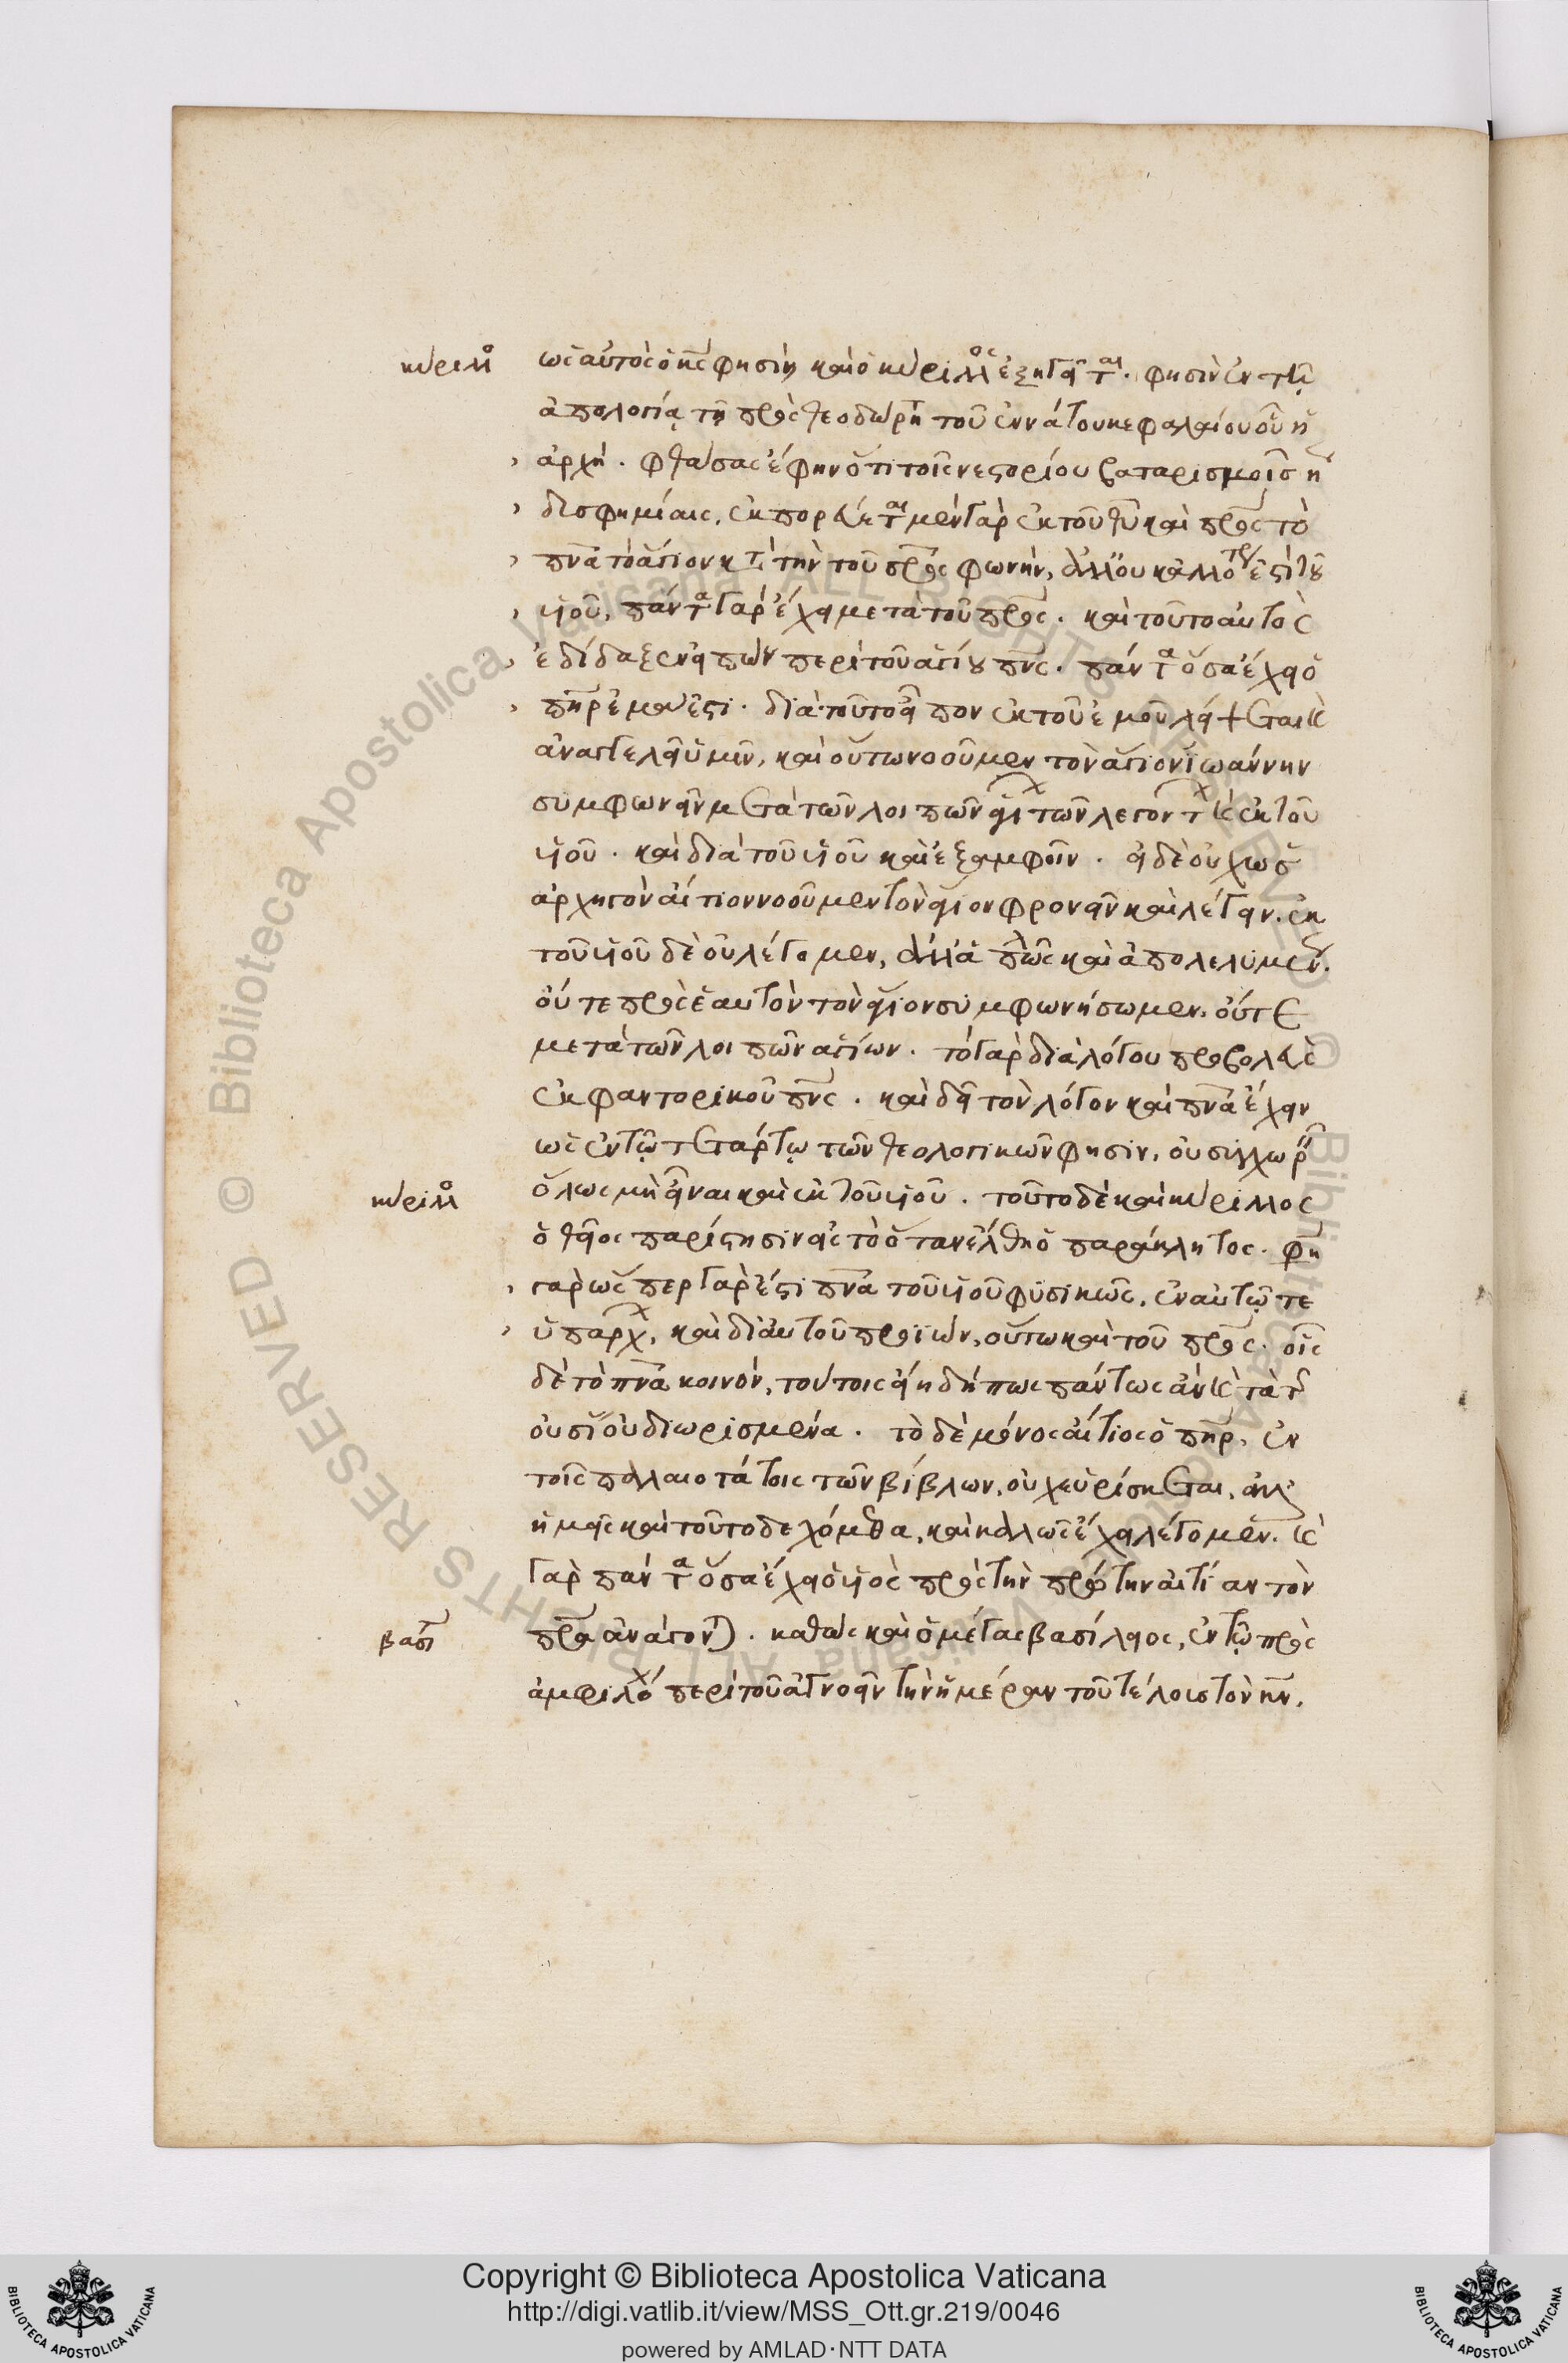 κύριλλο
ὡς αὐτὸς ὁ κς φησίν καὶ ὁ κύριλλος ἐξηγεῖται. φησὶν ἐν τῆ
ἀπολογία τῆ πρὸς θεοδώρη τοῦ ἐννάτου κεφαλαίου οὗ ἡ
ἀρχή. φθάσας ἔφην ὅτι τοῖς νεστορίου βαταρισμοῖς
δυσφημίαις, ἐκπορεύεται μὲν γὰρ ἐκ τοῦ θυ καὶ πρς τὸ
πνα τὸ ἅγιον κτ τὴν τοῦ σρς φωνήν, ἀλλ' οὐκ ἀλλότρ ἐστὶ τοῦ
υἱοῦ, πάντα γὰρ ἔχει μετὰ τοῦ πρς. καὶ τοῦτο αὐτὸς
ἐδίδαξεν εἰπὼν περὶ τοῦ ἁγίου πνς. πάντα ὅσα ἔχει ὁ
πηρ ἐμά ἐστι. διὰ τοῦτο εἶπον ἐκ τοῦ ἐμοῦ λήψεται καὶ
ἀναγγελεῖ ὑμῖν, καὶ οὕτω νοοῦμεν τὸν ἅγιον ἰωάννην
συμφωνεῖν μετὰ τῶν λοιπῶν ἁγί τῶν λεγόντ καὶ ἐκ τοῦ
υἱοῦ. καὶ διὰ τοῦ υἱοῦ καὶ ἐξ ἀμφοῖν. εἰ δὲ οὐχ ὡς
ἀρχηγὸν αἴτιον νοοῦμεν τὸν ἅγιον φρονεῖν καὶ λέγειν. ἐκ
τοῦ υἱοῦ δὲ οὐ λέγομεν, ἀλλὰ ἁπλῶς καὶ ἀπολελυμέν.
οὔτε πρὸς ἑαυτὸν τὸν ἅγιον συμφωνήσωμεν. οὔτε
μετὰ τῶν λοιπῶν ἁγίων. τὸ γὰρ διὰ λόγου προβολεὺς
ἐκφαντορικοῦ πνς. καὶ δεῖ τὸν λόγον καὶ πνα ἔχειν
ὡς ἐν τῶ τετάρτω τῶν θεολογικῶν φησιν, οὐ συγχωρ
ὅλως μὴ εἶναι καὶ ἐκ τοῦ υἱοῦ. τοῦτο δὲ καὶ κύριλλος
κύριλλ
ὁ θεῖος παρίστησιν εἰς τὸ ὅταν ἔλθη ὁ παράκλητος. φη
γὰρ ὥσπερ γὰρ ἐστι πνα τοῦ υἱοῦ φυσικῶς, ἐν αὐτῶ τε
ὑπάρχ, καὶ δι' αὐτοῦ προϊών, οὕτω καὶ τοῦ πρς. οἷς
δὲ τὸ πνα κοινόν, τούτοις εἴη δήπως πάντως ἂν καὶ τὰ τ
οὐσί οὐ διωρισμένα. τὸ δὲ μόνος αἴτιος ὁ πηρ, ἐν
τοῖς παλαιοτάτοις τῶν βίβλων, οὐχ εὑρίσκεται. ἀλλ'
ἡμεῖς καὶ τοῦτο δεχόμεθα, καὶ καλῶς ἔχει λέγομεν. καὶ
γὰρ πάντα ὅσα ἔχει ὁ υἱὸς πρὸς τὴν πρώτην αἰτίαν τὸν
πρα ἀνάγον. καθὼς καὶ ὁ μέγας βασίλειος, ἐν τῶ πρὸς
βασί
ἀμφιλόχ περὶ τοῦ ἀγνοεῖν τὴν ἡμέραν τοῦ τέλους τὸν κν.
Copyright © Biblioteca Apostolica Vaticana
http://digi.vatlib.it/view/MSS_Ott.gr.219/0046
powered by AMLAD·NTT DATA